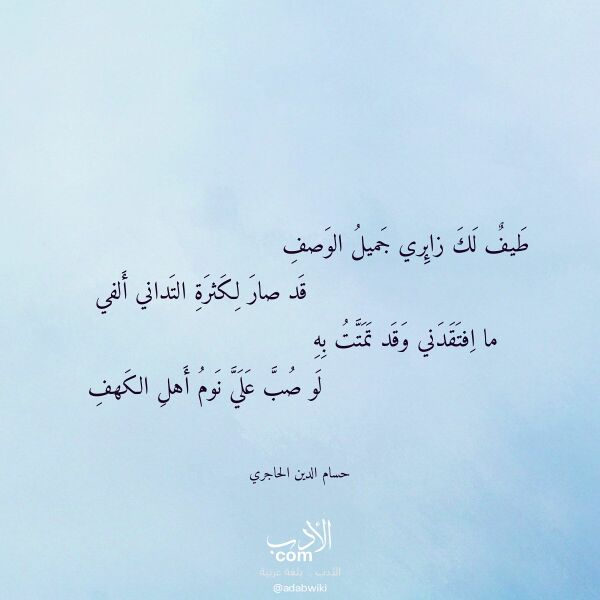 طَيفٌ لَكَ زايِري جَميلُ الوَصفِ
قَد صارَ لِكَثرَةِ التَداني أَلفي
ما اِفتَقَدَني وَقَد تَمَتَّتُ بِهِ
لَو صُبَّ عَلَيَّ نَومُ أَهلِ الكَهفِ
حسام الدين الحاجري
الأدب
com
الأدب .. بلغة عربية
@adabwiki